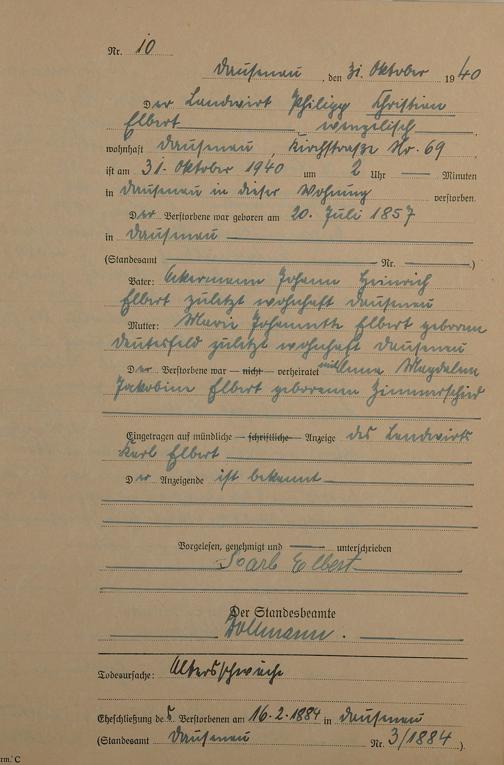 Nr. 10
Dausenau, den 31. Oktober 1940
Der Landwirt Philipp Christian
Elbert, evangelisch
wohnhaft Dausenau, Kirchstraße Nr. 69
ist am 31. Oktober 1940 um 2 Uhr — Minuten
in Dausenau in dieser Wohnung verstorben.
Der Verstorbene war geboren am 20. Juli 1857
in Dausenau
(Standesamt Nr. )
Vater: Ackermann Johann Heinrich
Elbert zuletzt wohnhaft Dausenau
Mutter: Marie Johannette Elbert geborene
zuletzt wohnhaft Dausenau
Der Verstorbene war — nicht — verheiratet mit Anna Magdalena
Jakobine Elbert geborenen Zimmerschied
Eingetragen auf mündliche — schriftliche — Anzeige des Landwirts
Karl Elbert
Der Anzeigende ist bekannt
Vorgelesen, genehmigt und — unterschrieben
Karl Elbert
Der Standesbeamte
Todesursache: Altersschwäche
Eheschließung des Verstorbenen am 16.2.1884 in Dausenau
(Standesamt Dausenau Nr. 3/1884).
rm. C